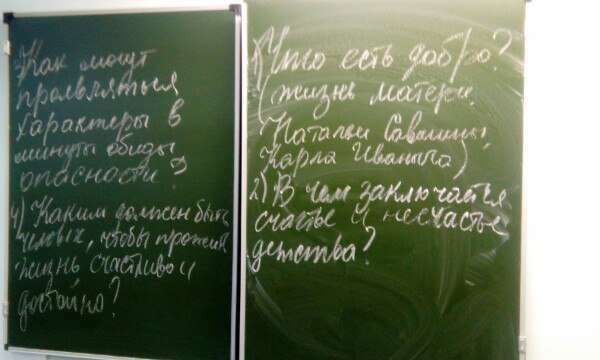 Как могут
проявляться
характеры в
минуты обиды,
опасности?
4) Каким должен быть
человек, чтобы прожив
жизнь счастливо и
достойно?
1) Что есть добро?
(жизнь матери,
Натальи Савишны,
Карла Иваныча)
2) В чем заключается
счастье и несчастье
детства?